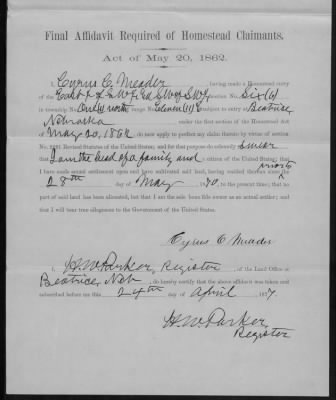 Final Affidavit Required of Homestead Claimants.
Act of May 20, 1862.
I, Cyrus C. Meader, having made a Homestead entry
of the East ½ of S.W. ¼ section Six (6)
in township One (1) north range Eleven (11) E subject to entry at Beatrice,
Nebraska under the first section of the Homestead Act
of May 20, 1862 do now apply to perfect my claim thereto by virtue of section
No. 2291 Revised Statutes of the United States; and for that purpose do solemnly swear
that I am the head of a family and citizen of the United States; that I
have made actual settlement upon and have cultivated said land, having resided thereon since prior to
28th day of May 70, to the present time; that no
part of said land has been alienated, but that I am the sole bona fide owner as an actual settler; and
that I will bear true allegiance to the Government of the United States.
Cyrus C Meader
I, H.W. Parker, Register, of the Land Office at
Beatrice, Neb do hereby certify that the above affidavit was taken and
subscribed before me this 24th day of April 1877
H.W. Parker
Register